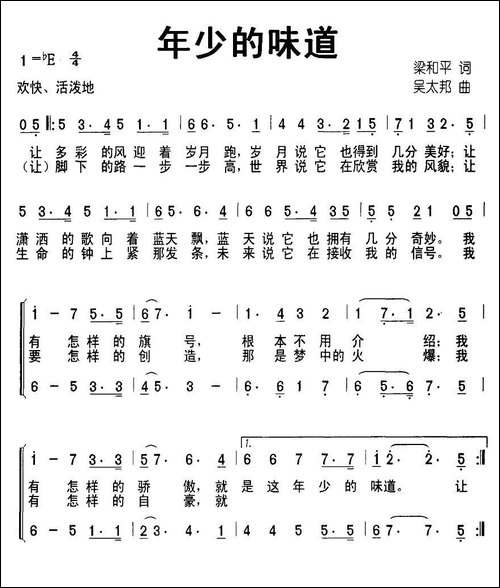 年少的味道
1=♭E 4/4
梁和平 词
欢快、活泼地
吴太邦 曲
05‖:5 3·45 1·1|66·5·|44·3·215|71 32·5|
让多彩的风迎着岁月跑,岁月说它也得到几分美好;让
(让)脚下的路一步一步高,世界说它在欣赏我的风貌;让
5 3·4 5 1·1|165·6·|66 5·435|752 21 05|
潇洒的歌向着蓝天飘,蓝天说它也拥有几分奇妙。我
生命的钟上紧那发条,未来说它在接收我的信号。我
i - 7 5·5|67·i -|1·432|17·12·5|
有怎样的旗号,根本不用介绍;我
要怎样的创造,那是梦中的火爆;我
6 - 5 3·3|45·3 -|6·617|65·67·5|
i - 7 3·3|57·6·4|6 6 7 7·7|i2·2·5:‖
1.
有怎样的骄傲,就是这年少的味道。让
有怎样的自豪,就
6 - 5 1·1|23·4·1|4 4 5 5·5|67·7·5:‖